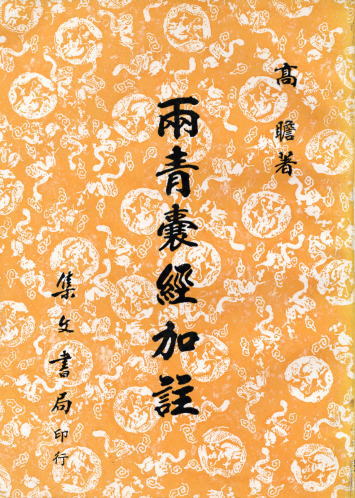 高瞻著
兩青囊經加註
集文書局印行